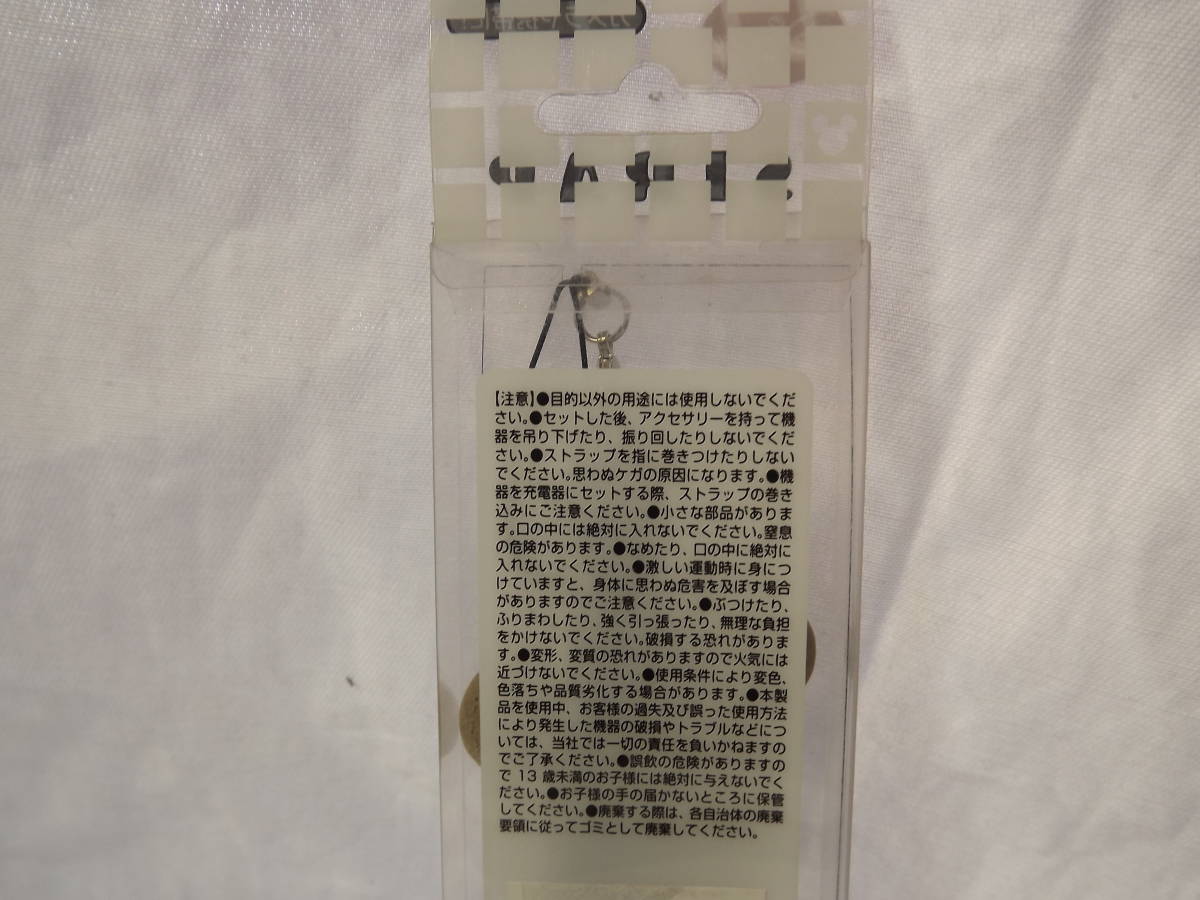 【注意】●目的以外の用途には使用しないでくだ
さい。●セットした後、アクセサリーを持って機
器を吊り下げたり、振り回したりしないでくだ
さい。●ストラップを指に巻きつけたりしない
でください。思わぬケガの原因になります。●機
器を充電器にセットする際、ストラップの巻き
込みにご注意ください。●小さな部品がありま
す。口の中には絶対に入れないでください。窒息
の危険があります。●なめたり、口の中に絶対に
入れないでください。●激しい運動時に身につ
けていますと、身体に思わぬ危害を及ぼす場合
がありますのでご注意ください。●ぶつけたり、
ふりまわしたり、強く引っ張ったり、無理な負担
をかけないでください。破損する恐れがありま
す。●変形、変質の恐れがありますので火気には
近づけないでください。●使用条件により変色、
色落ちや品質劣化する場合があります。●本製
品を使用中、お客様の過失及び誤った使用方法
により発生した機器の破損やトラブルなどにつ
いては、当社では一切の責任を負いかねますの
でご了承ください。●誤飲の危険がありますの
で 13 歳未満のお子様には絶対に与えないでく
ださい。●お子様の手の届かないところに保管
してください。●廃棄する際は、各自治体の廃棄
要領に従ってゴミとして廃棄してください。